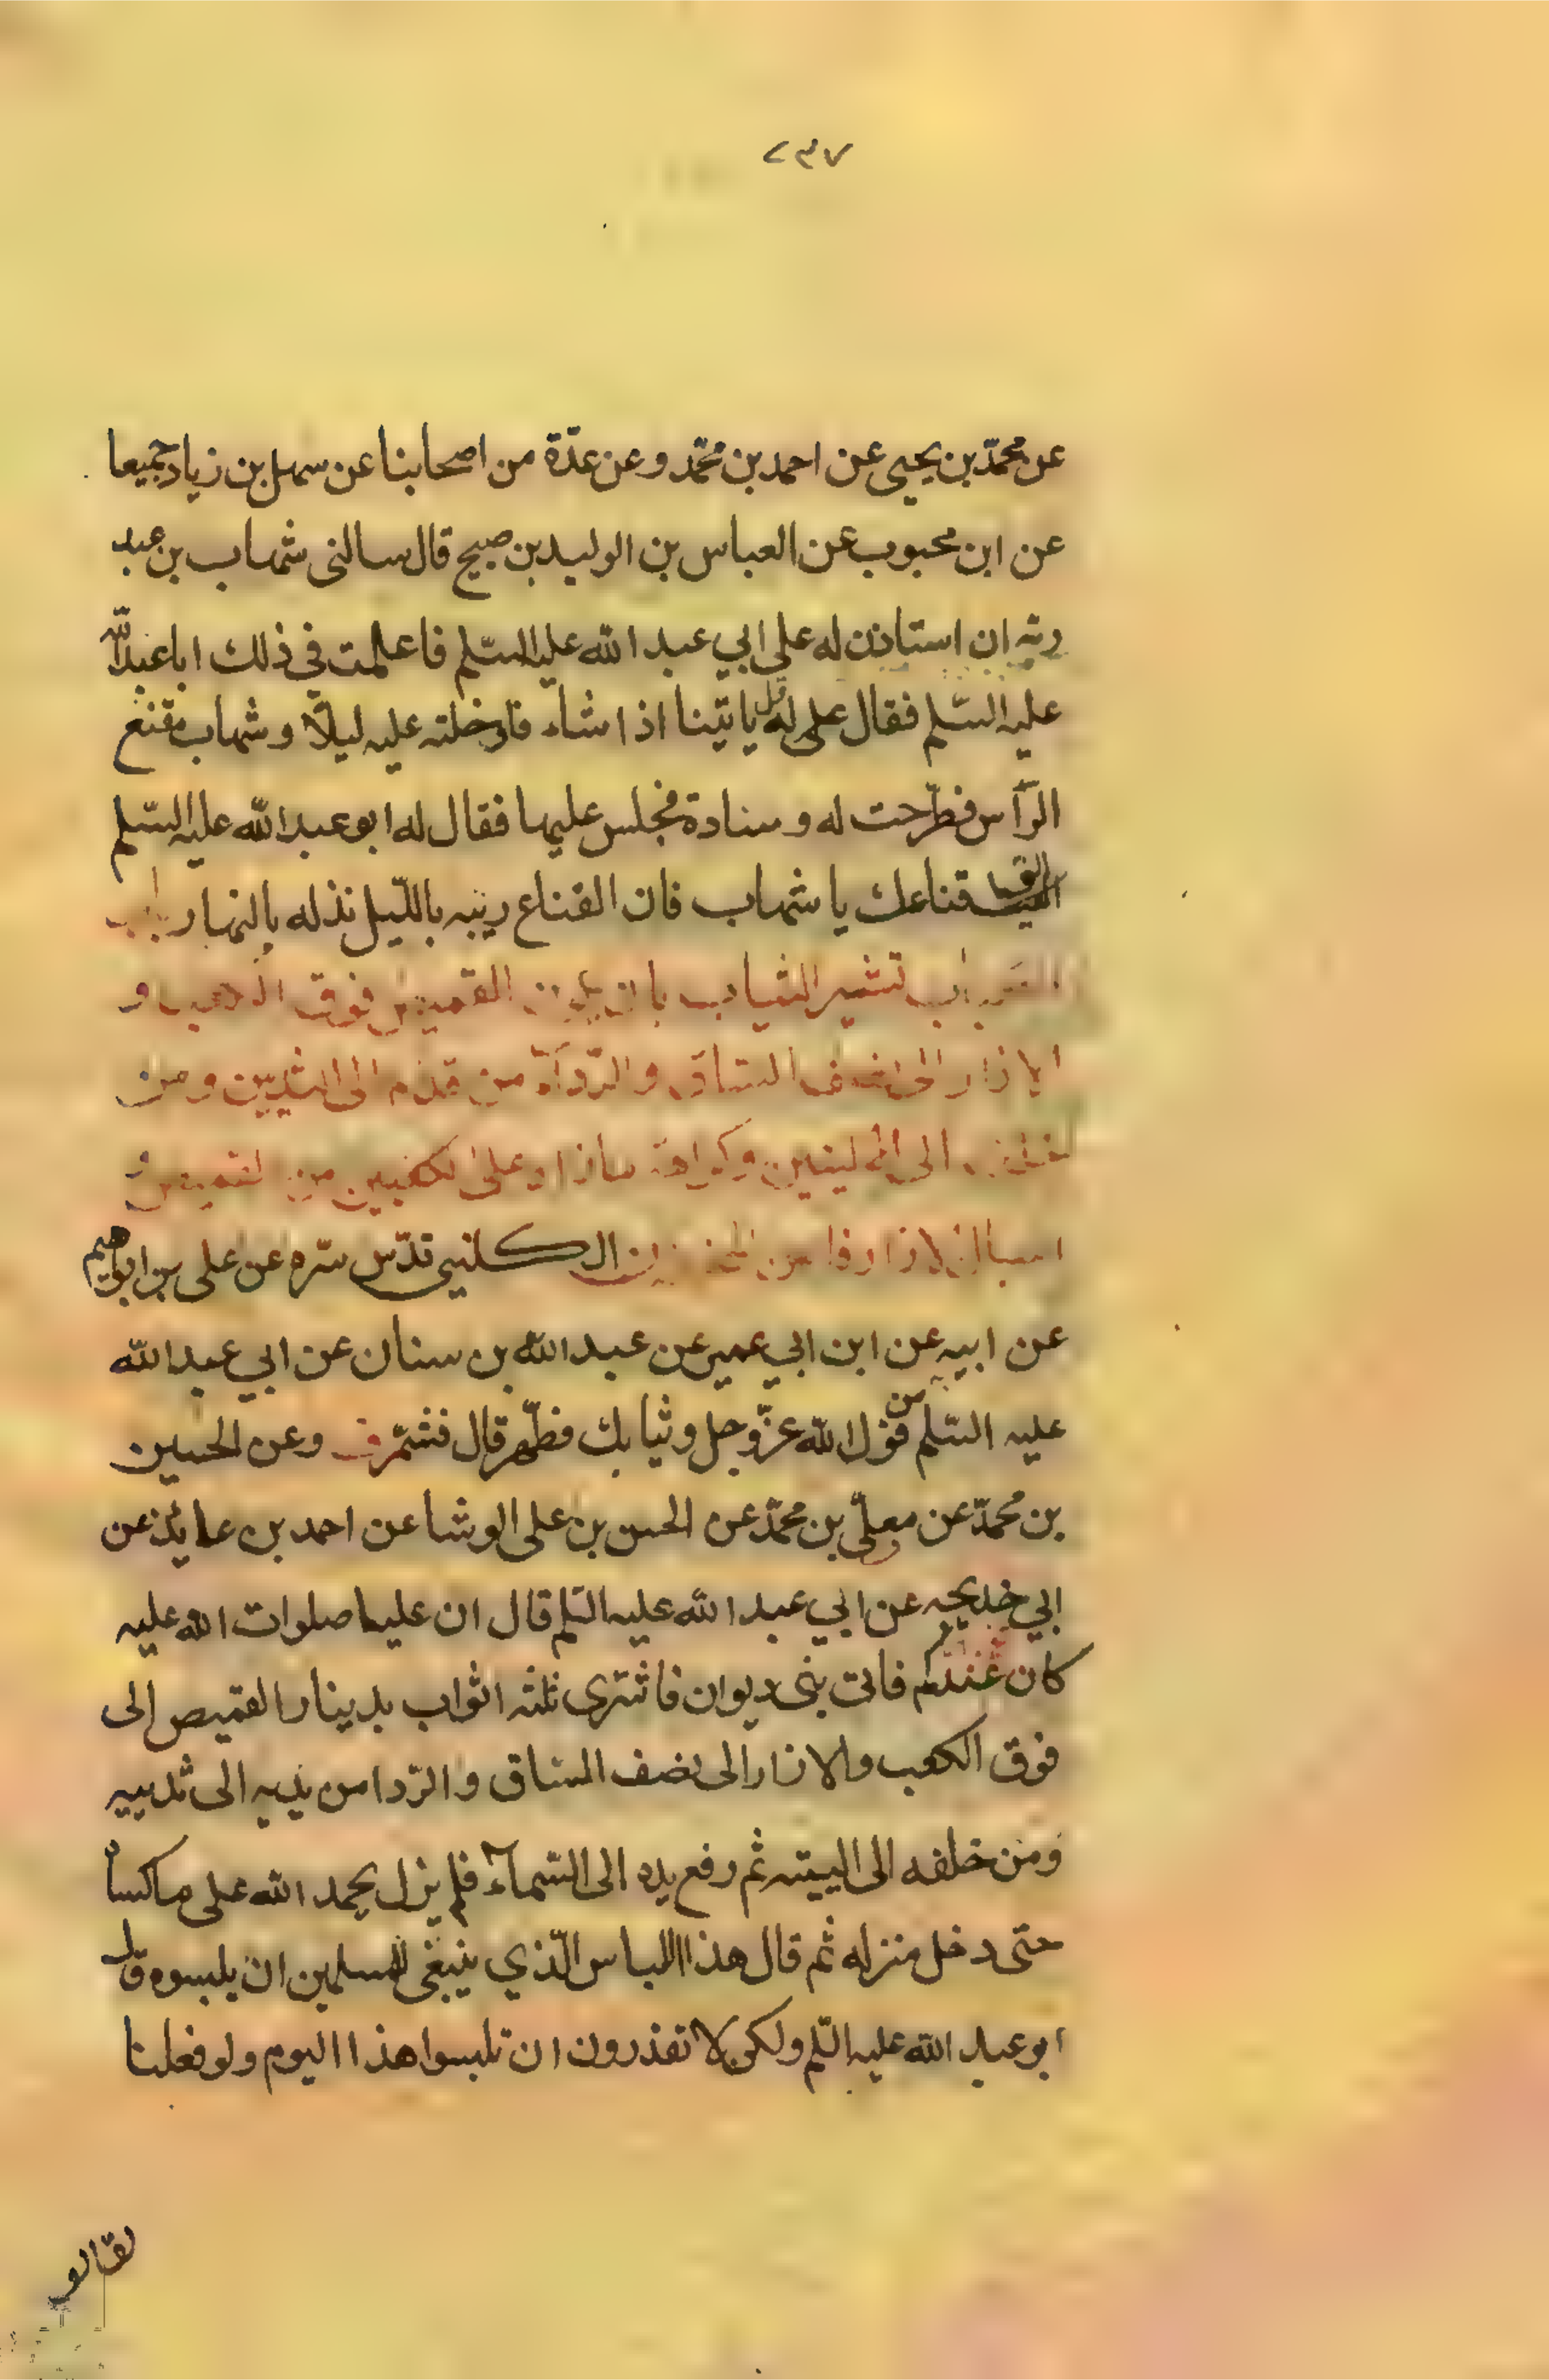 ٢٣٧
عن محمّد بن يحيى عن احمد بن محمّد وعن عدّة من اصحابنا عن سهل بن زياد جميعا
عن ابن محبوب عن العباس بن الوليد بن صبيح قال سالنى شهاب بن عبد
ربّه ان استاذن له على ابي عبد الله عليه السّلم فاعلمت فى ذلك ابا عبد الله
عليه السّلم فقال على له قل ياتينا اذا شاء فادخلته عليه ليلًا وشهاب مقنع
الرّأس فطّرحت له وسنادة فجلس عليها فقال له ابو عبد الله عليه السّلم
الق قناعك يا شهاب فان القناع ريبه باللّيل مذله بالنهار باب
استحباب تشمير الثياب بان يكون القميص فوق الكعب و
الازار الى نصف الساق والرّدآء من قدّام الى الثديين ومن
خلفه الى الاليتين وكراهة مازاد على الكعبين من القميص و
اسبال الازار الكلينى قدّس سّره عن على بن ابراهيم
عن ابيه عن ابن ابي عمير عن عبد الله بن سنان عن ابي عبد الله
عليه السّلم من قول الله عزّ وجل وثيابك فطّهر قال فشمّر ف وعن الحسين
بن محمّد عن معلّى بن محمّد عن الحسن بن على الوشا عن احمد بن عايذ عن
ابي خديجه عن ابي عبد الله عليه السّلم قال ان عليا صلوات الله عليه
كان عندكم فاتى بنى ديوان فاشترى ثلثه اثواب بدينار القميص الى
فوق الكعب والازار الى نصف الساق والرّدا من يديه الى ثدييه
ومن خلفه الى اليتيه ثم رفع يده الى السّمآء فلم يزل يحمد الله على ما كساه
حتى دخل منزله ثم قال هذا اللباس الّذي ينبغى للمسلمين ان يلبسوه قال
ابو عبد الله عليه السّلم ولكن لا تقدرون ان تلبسوا هذا اليوم ولو فعلنا
لقالو